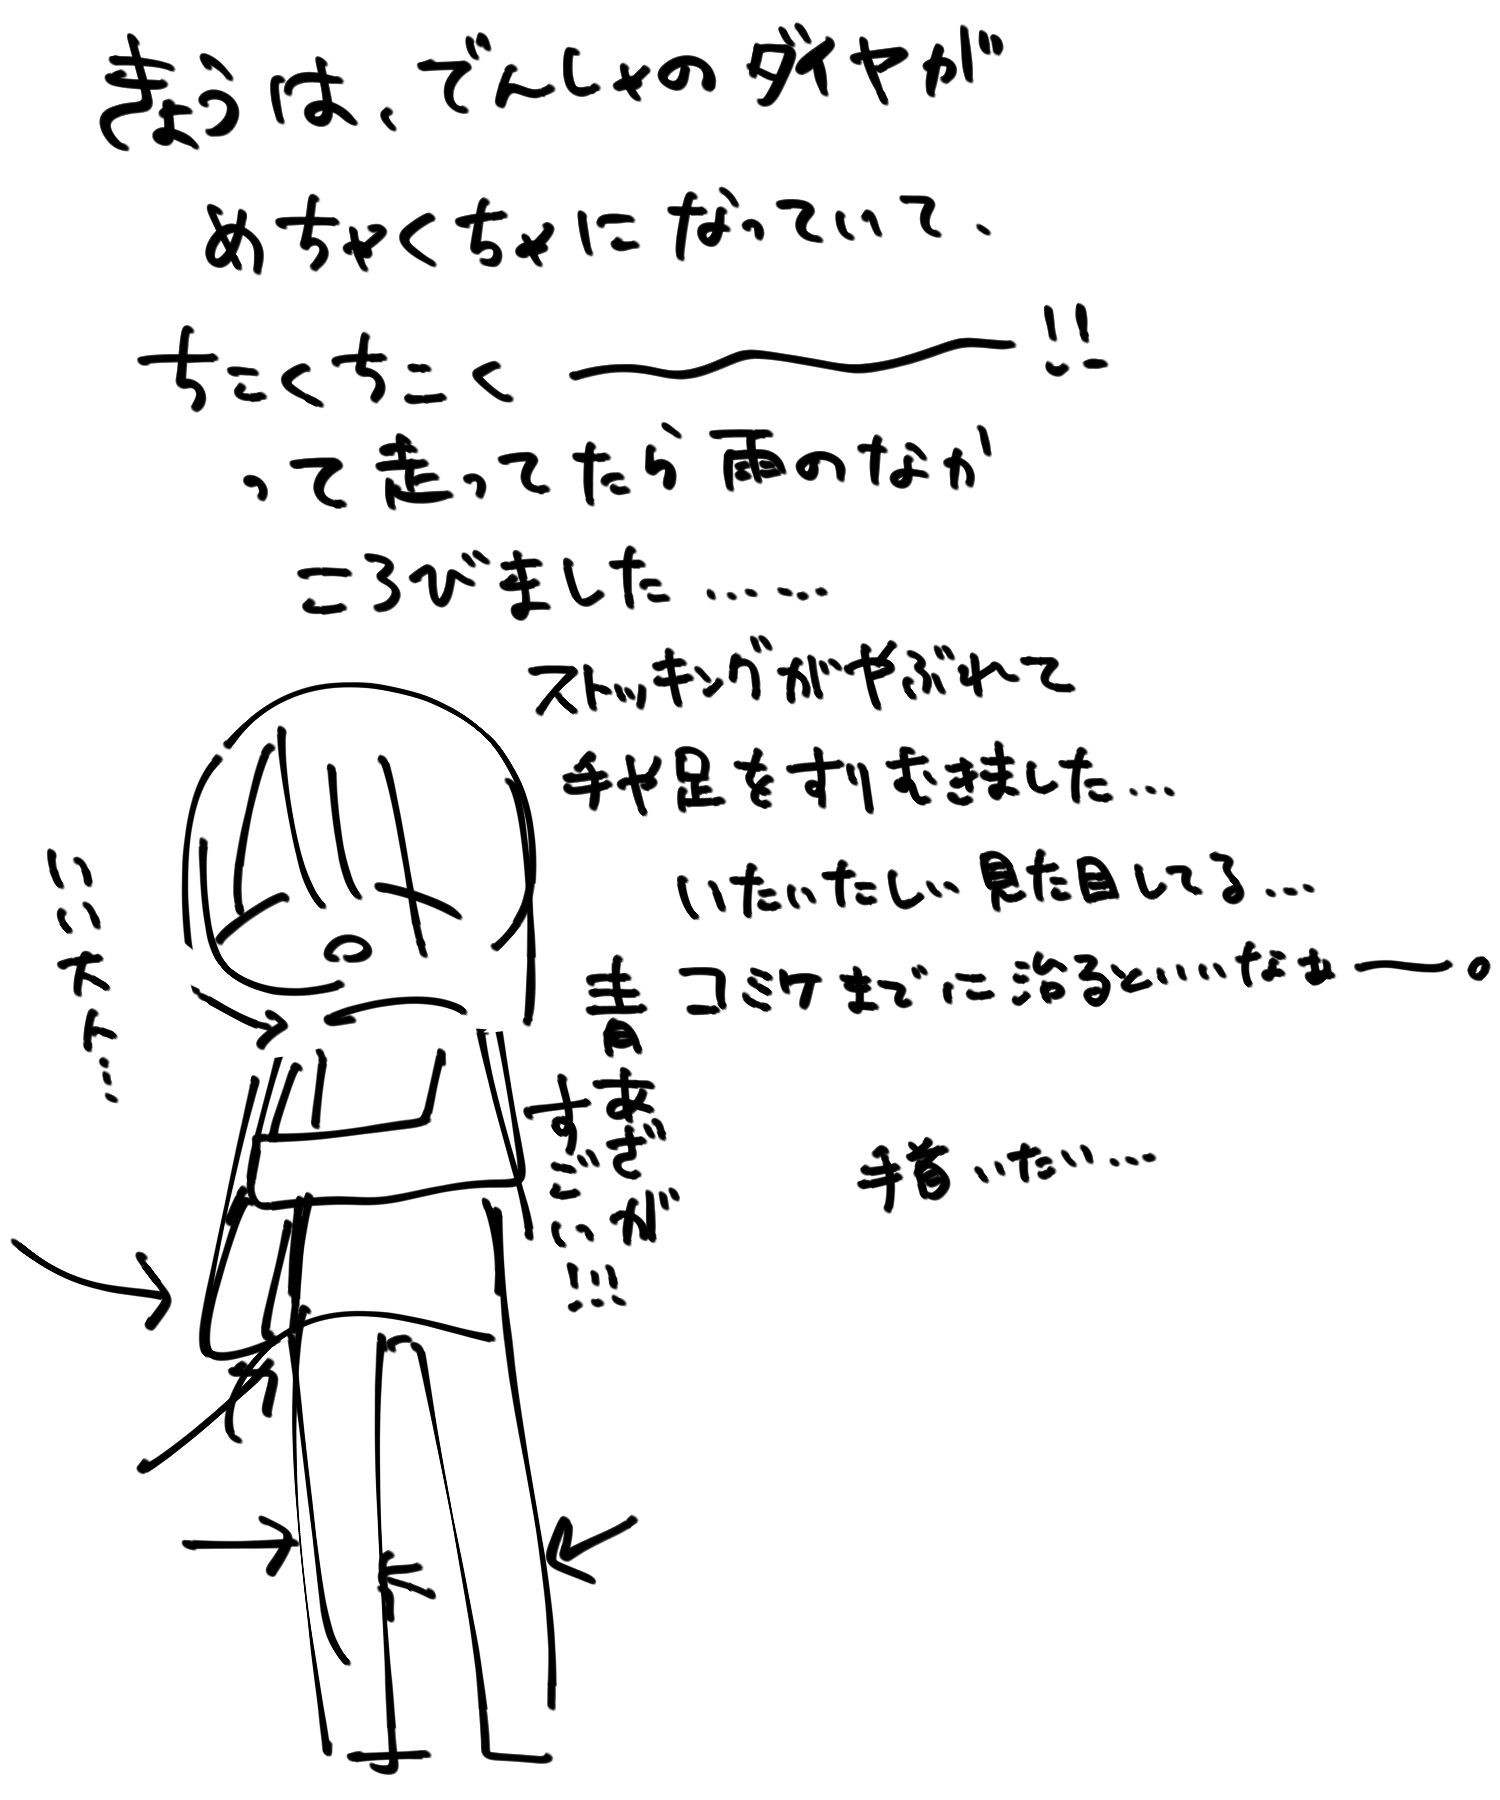 きょうは、でんしゃのダイヤが
めちゃくちゃになっていて、
ちこくちこく〜!!
って走ってたら雨のなか
ころびました……
ストッキングがやぶれて
手や足をすりむきました…
いたいたしい見た目してる…
コミケまでに治るといいなぁー。
青あざが
すごい!!!
手首いたい…